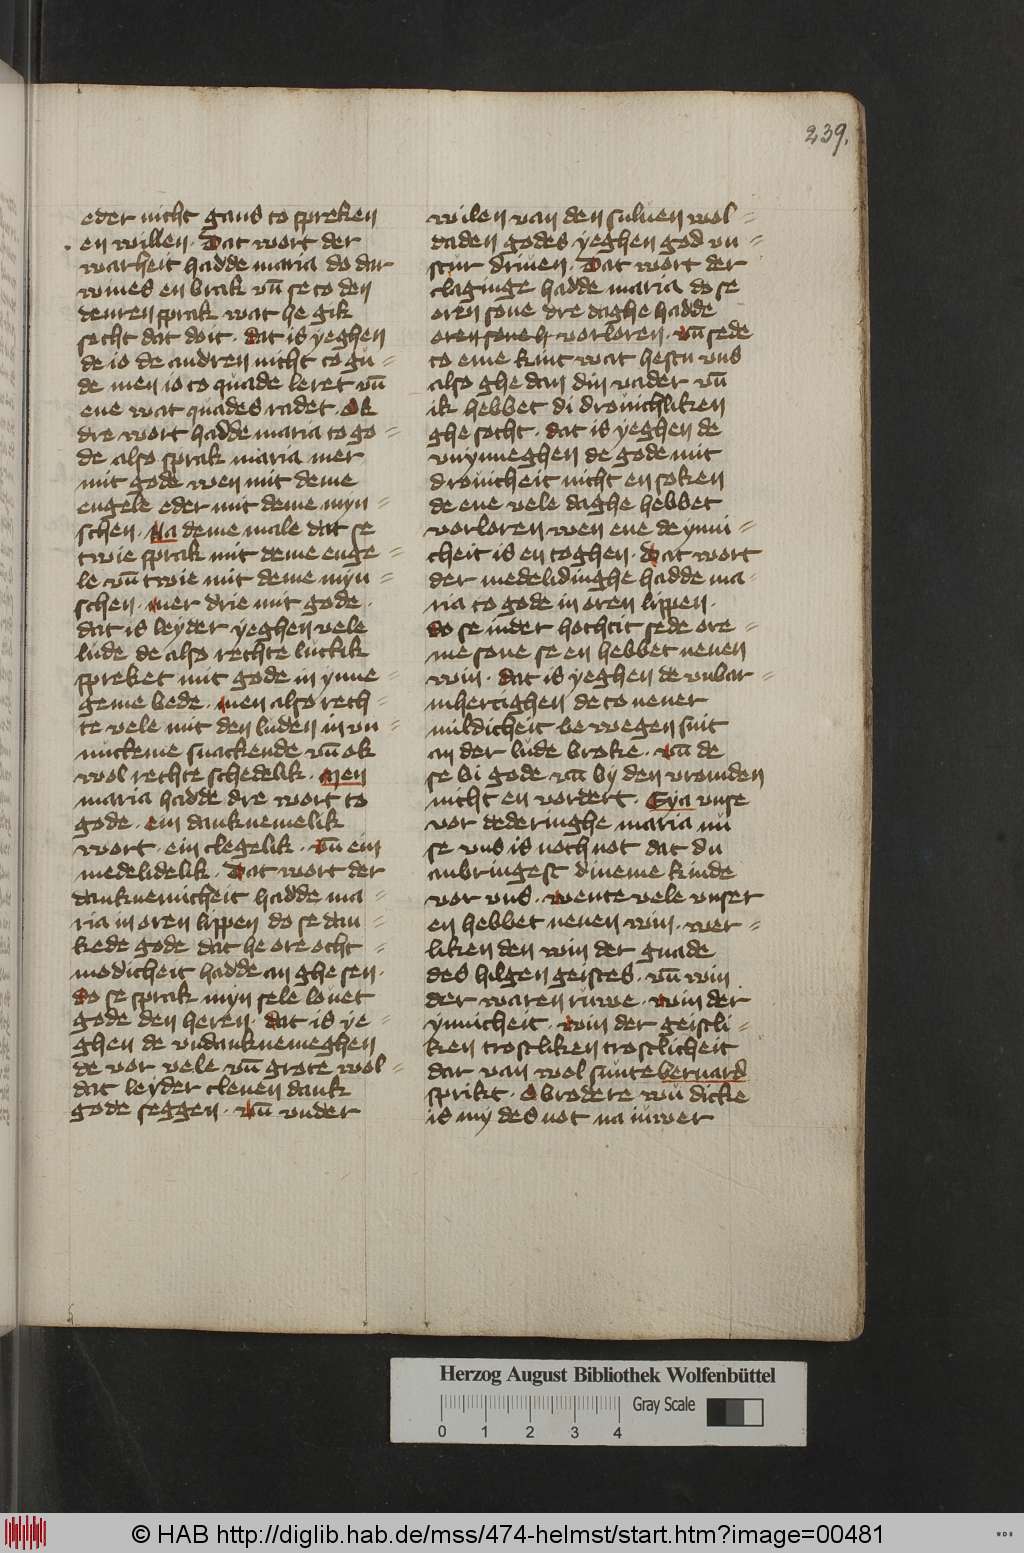 239.
eder nicht gans to spreken
en willen. Dat wort der
warheit hadde maria do dar
wines en brak vn̄ se to den
denren sprak wat he gik
secht dat doit. dat is yeghen
de io de andren nicht to gu=
de men io to quade leret vn̄
ene wat quades radet. Ok
dre wort hadde maria to go=
de also sprak maria mer
mit gode wen mit deme
engele eder mit deme myn=
schen. Na deme male dat se
twie sprak mit deme enge=
le vn̄ twie mit deme myn=
schen. mer drie mit gode.
dat is leyder yeghen vele
lude de also rechte luttik
spreket mit gode in ynne=
geme bede. men also rech=
te vele mit den luden in vn=
nutteme snackende vn̄ ok
wol rechte schedelik. Men
maria hadde dre wort to
gode. ein danknemelik
wort. ein clegelik. vn̄ ein
medelidelik. Dat wort der
danknemicheit hadde ma=
ria in oren lippen do se dan=
kede gode dat he ore ocht=
modicheit hadde an ghe sen.
do se sprak myn sele louet
gode den heren. dat is ye=
ghen de vndanknemeghen
de vor vele vn̄ grote wol=
dat leyder cleuen dank
gode seggen. vn̄ vnder
wilen van den suluen wol=
daden godes yeghen god vn=
stur driuen. Dat wort der
claginge hadde maria do se
oren sone dre daghe hadde
oren sone h vorloren. vn̄ sede
to eme kint wat hestu vns
also ghe dan din vader vn̄
ik hebbet di drouichliken
ghe socht. dat is yeghen de
vnynneghen de gode mit
drouicheit nicht en soken
de ene vele daghe hebbet
vorloren wen ene de ynni=
cheit is en toghen. dat wort
der medelidinghe hadde ma=
ria to gode in oren lippen.
do se in der hochtit sede ore=
me sone se en hebbet nenen
win. dat is yeghen de vnbar=
mhertighen de to nener
mildicheit be wegen sint
an der lude broke. vn̄ de
se bi gode vn̄ by den vromden
nicht en vordert. Eya vnse
vor dederinghe maria nu
se vns is noch not dat du
anbringest dineme kinde
vor vns. wente vele vnser
en hebbet nenen win. wer=
liken den win der gnade
des hilgen geistes. vn̄ win
der waren ruwe. win der
ynnicheit. win der geistli=
ken trostliken trostlicheit
dar van wol sunte bernard
sprikt. O brodere wu dicke
is my des not na iuwer
Herzog August Bibliothek Wolfenbüttel
Gray Scale
0 1 2 3 4
© HAB http://diglib.hab.de/mss/474-helmst/start.htm?image=00481